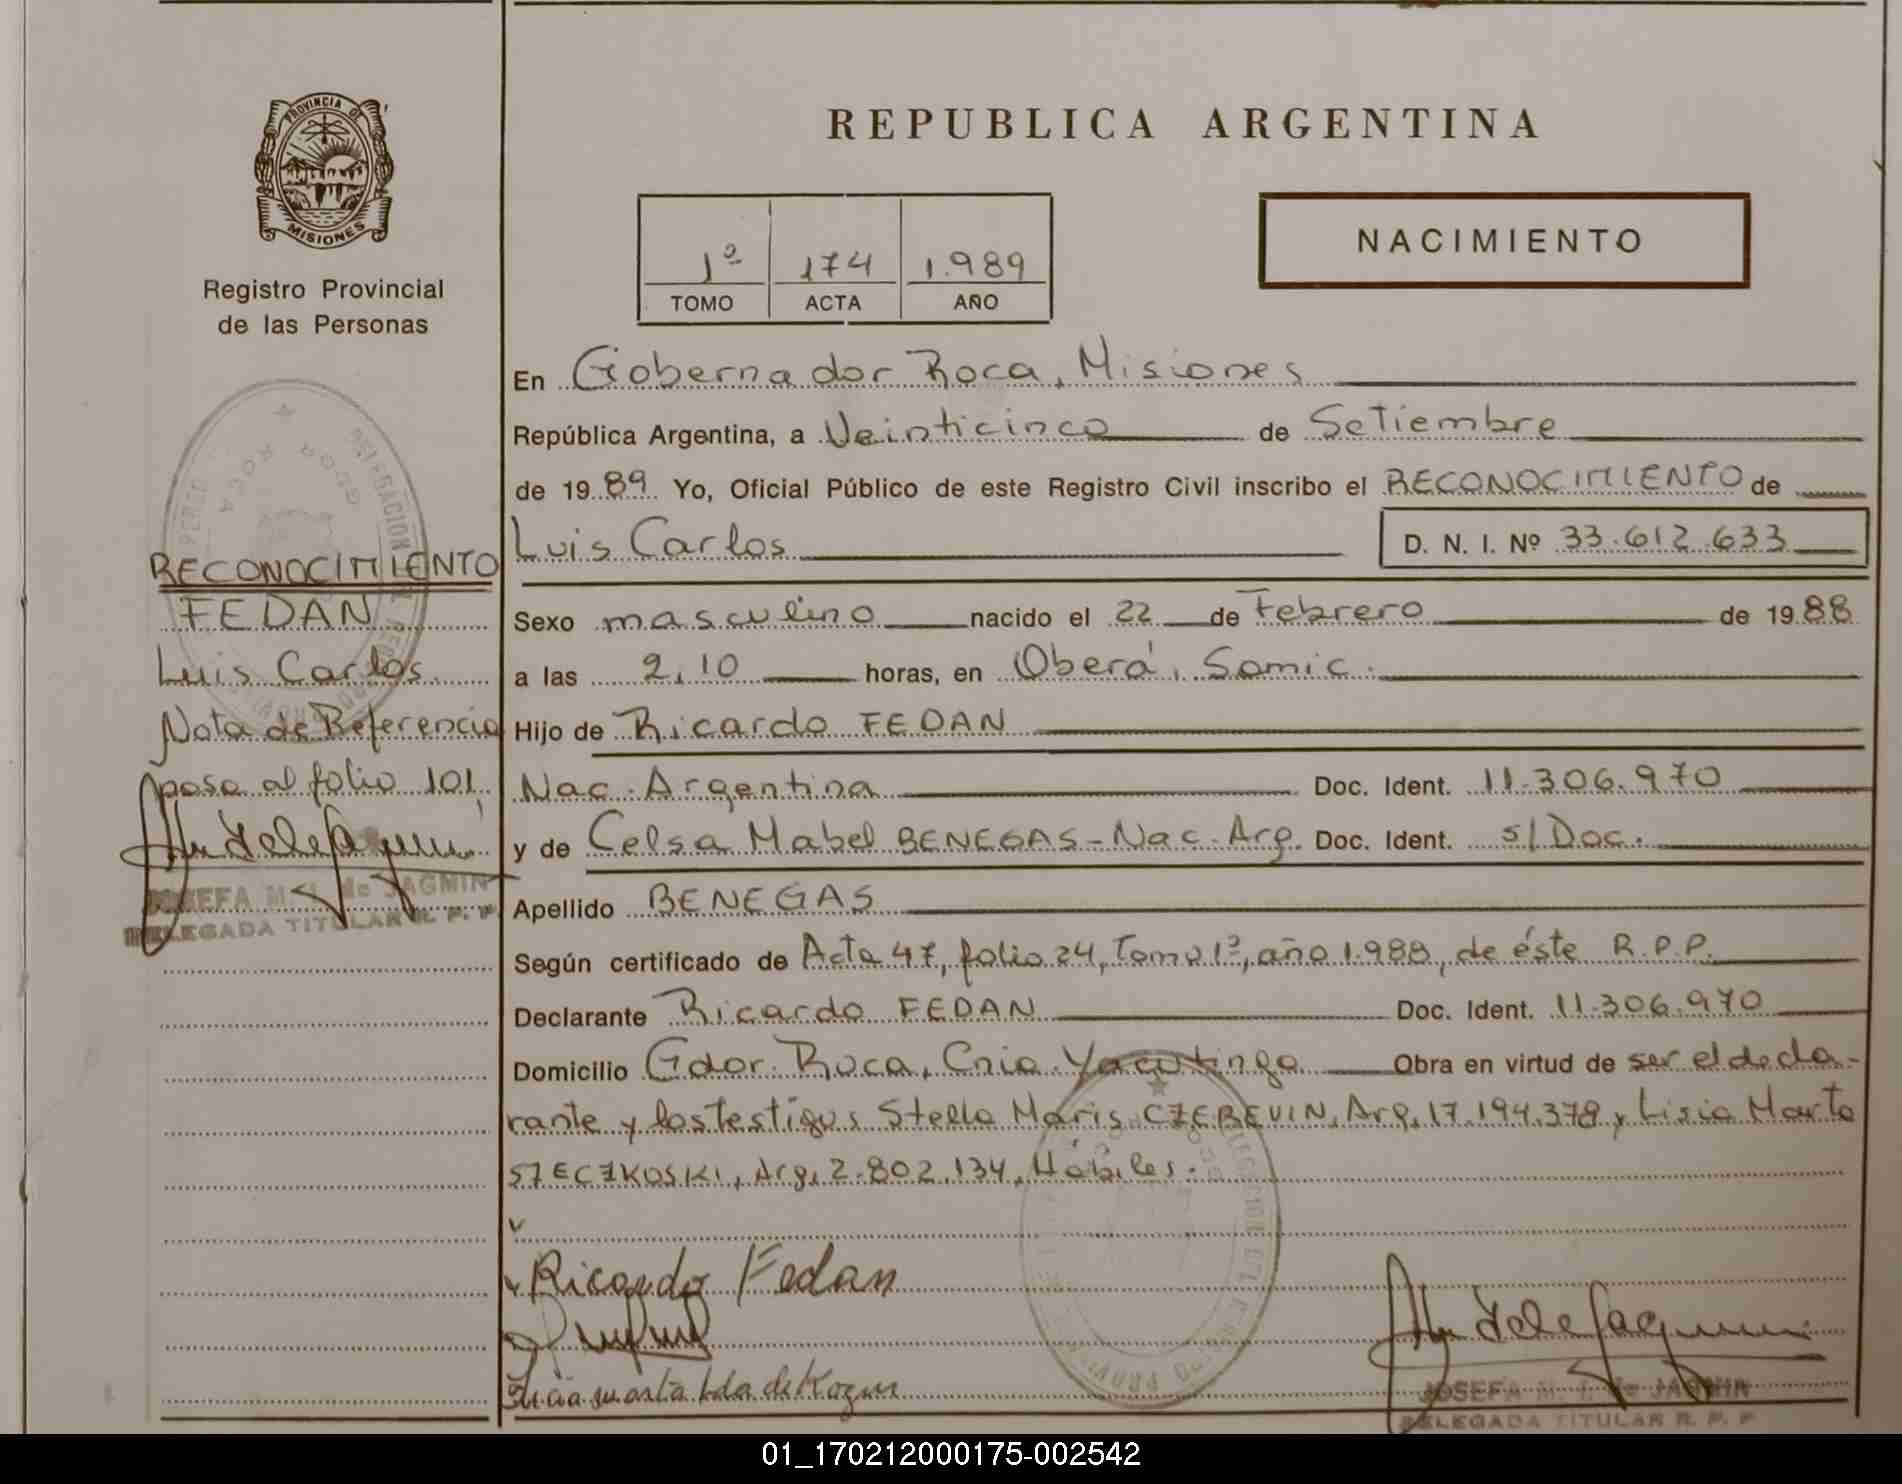 PROVINCIA DE
MISIONES
Registro Provincial
de las Personas
RECONOCIMIENTO
FEDAN
Luis Carlos
Nota de Referencia
pasa al folio 101
JOSEFA M. I. de JAGMIN
DELEGADA TITULAR R. P. P
REPUBLICA ARGENTINA
1º 174 1.989
TOMO ACTA AÑO
NACIMIENTO
En Gobernador Roca, Misiones
República Argentina, a Veinticinco de Setiembre
de 1989 Yo, Oficial Público de este Registro Civil inscribo el RECONOCIMIENTO de
Luis Carlos D. N. I. Nº 33.612.633
Sexo masculino nacido el 22 de Febrero de 1988
a las 2,10 horas, en Oberá, Samic.
Hijo de Ricardo FEDAN
Nac. Argentina Doc. Ident. 11.306.970
y de Celsa Mabel BENEGAS - Nac. Arg. Doc. Ident. s/Doc.
Apellido BENEGAS
Según certificado de Acta 47, folio 24, Tomo 1º, año 1.988, de éste R.P.P.
Declarante Ricardo FEDAN Doc. Ident. 11.306.970
Domicilio Gdor. Roca, Cnia. Yacutinga Obra en virtud de ser el decla-
rante y los testigos Stella Maris CZEREVIN, Arg, 17.194.378 y Lisia Marta
SZECZKOSKI, Arg, 2.802.134, Hábiles.
Ricardo Fedan
JOSEFA M. I. de JAGMIN
DELEGADA TITULAR R. P. P
01_170212000175-002542